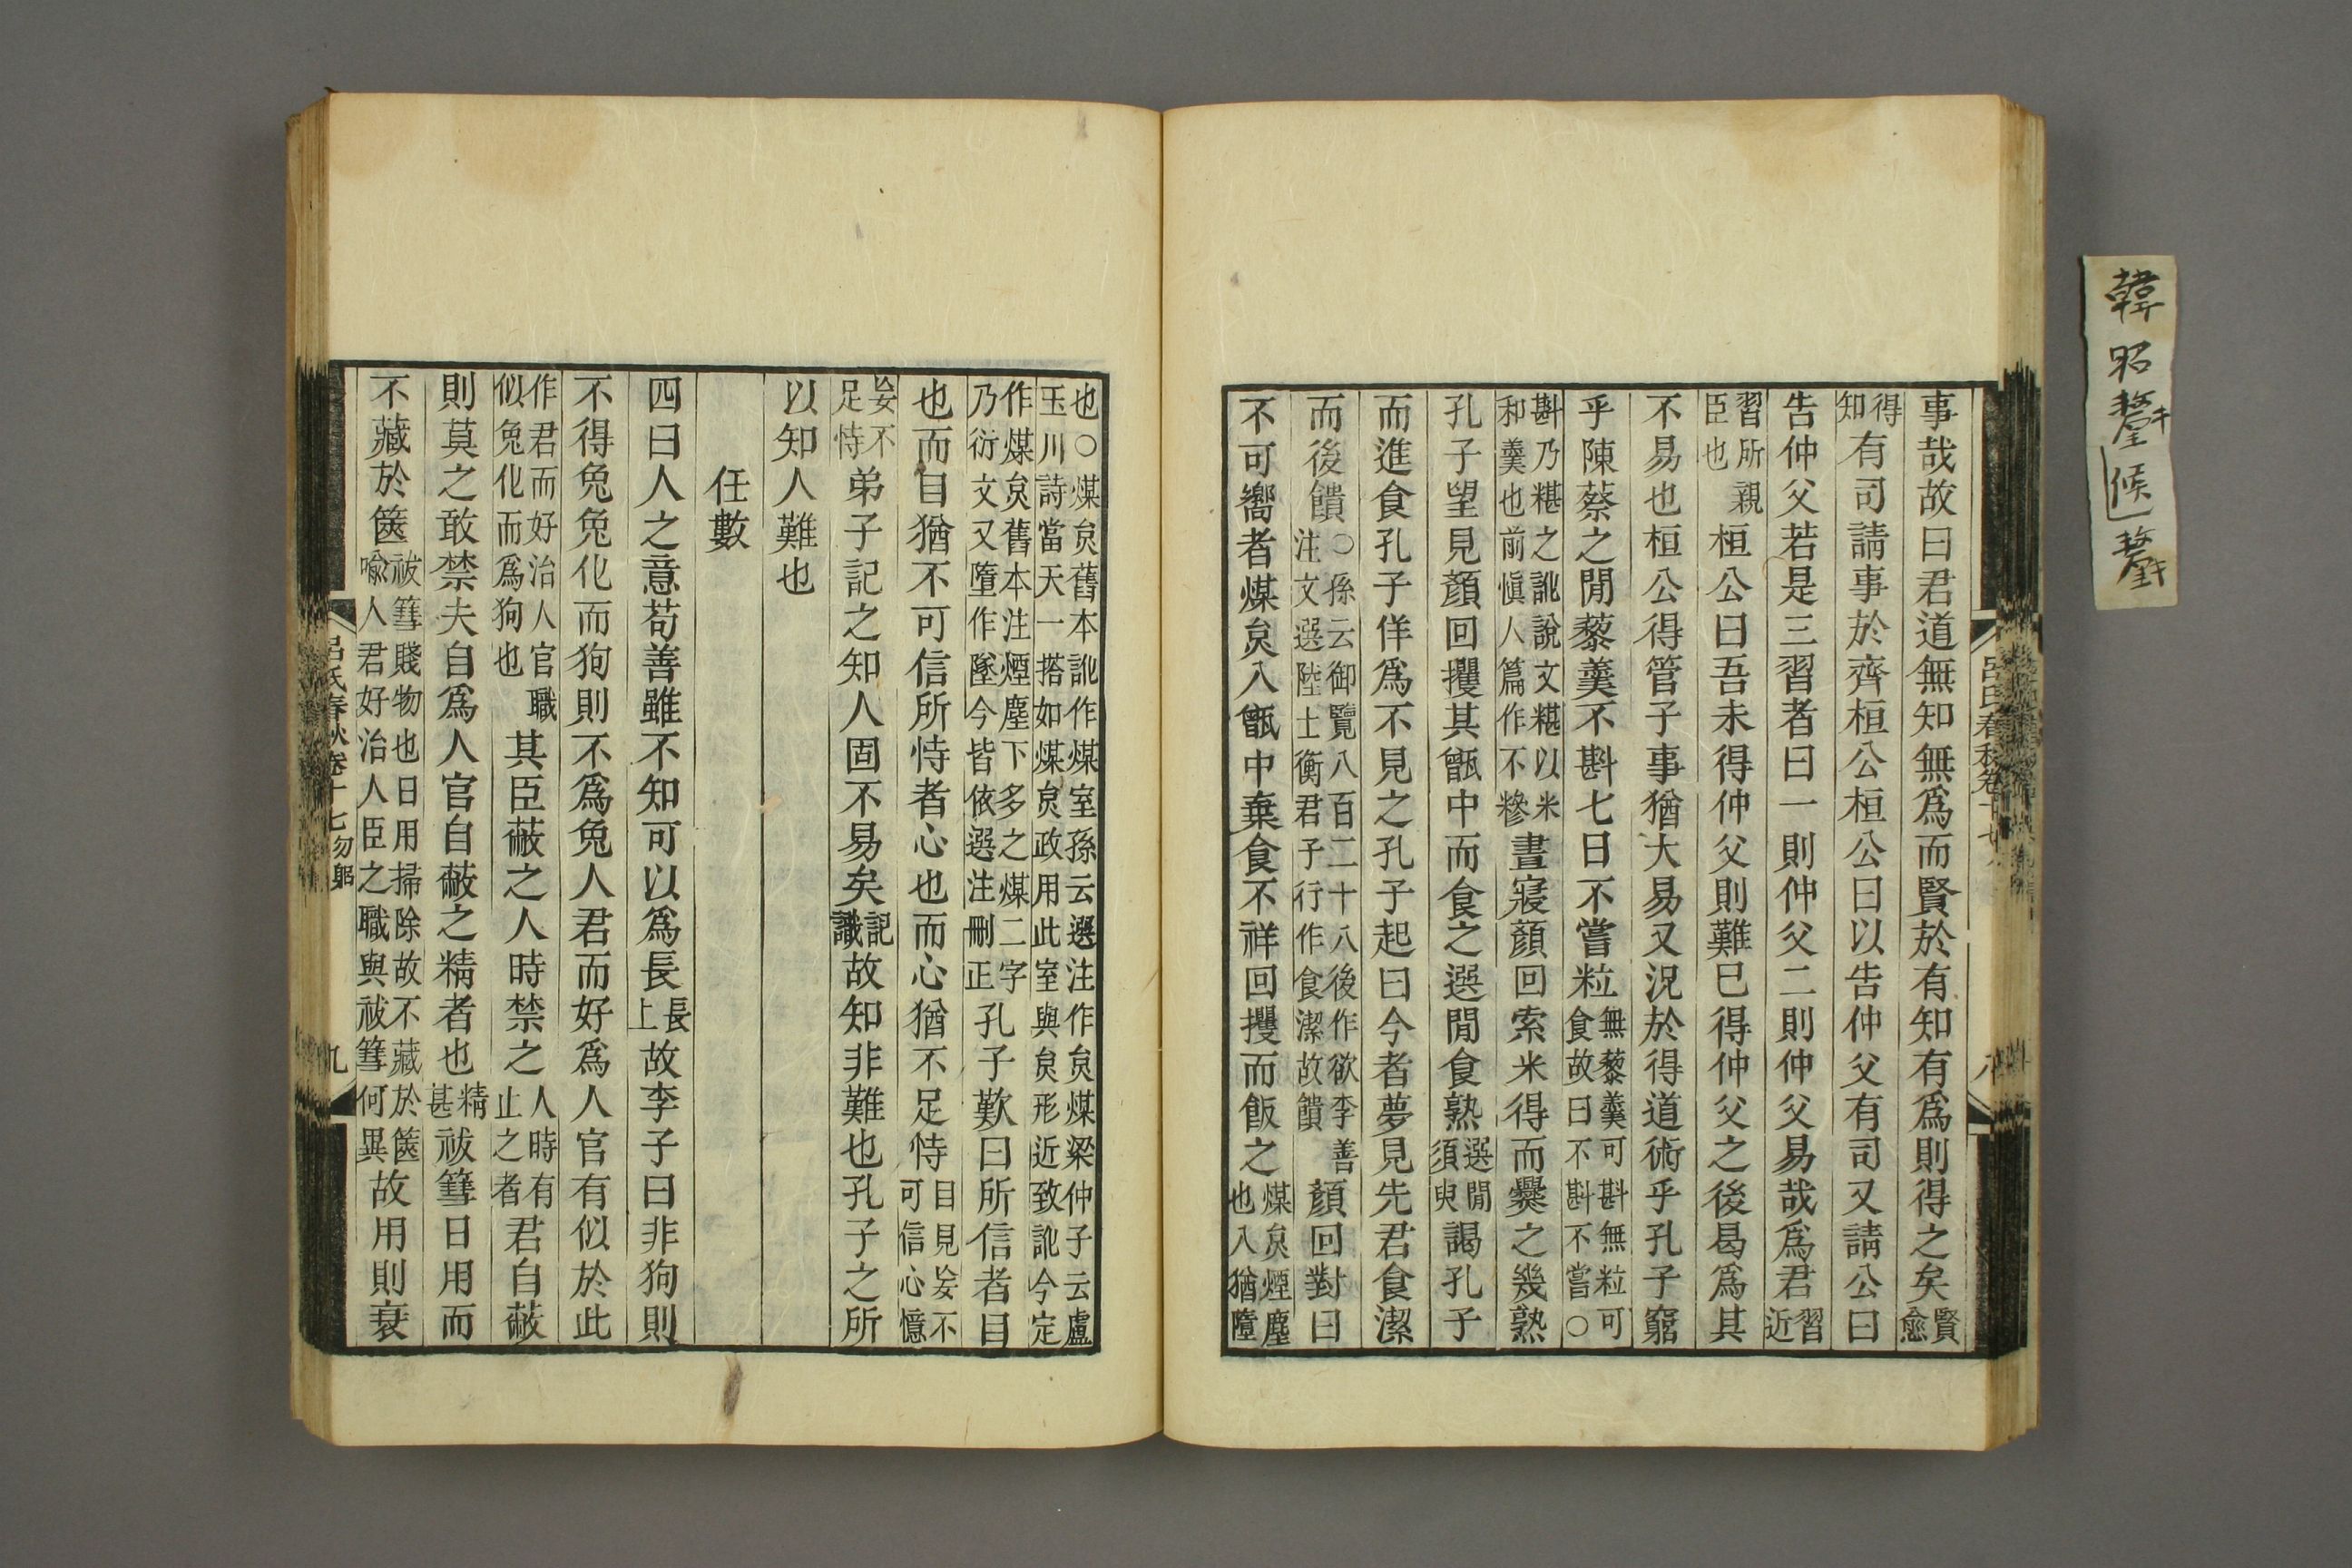 事哉故曰君道無知無爲而賢於有知有爲則得之矣賢愈
得知有司請事於齊桓公桓公曰以告仲父有司又請公曰
告仲父若是三習者曰一則仲父二則仲父易哉爲君習近
習所親臣也桓公曰吾未得仲父則難已得仲父之後曷爲其
不易也桓公得管子事猶大易又況於得道術乎孔子窮
乎陳蔡之閒藜羹不斟七日不嘗粒無藜羹可斟無粒可食故曰不斟不嘗○
斟乃糂之訛說文糂以米和羹也前愼人篇作不糝晝寢顏回索米得而爨之幾熟
孔子望見顏回攫其甑中而食之選閒食熟選閒須臾謁孔子
而進食孔子佯爲不見之孔子起曰今者夢見先君食潔
而後饋○孫云御覽八百二十八後作欲李善注文選陸士衡君子行作食潔故饋顏回對曰
不可嚮者煤炱入甑中棄食不祥回攫而飯之煤炱煙塵也入猶墮
也○煤炱舊本訛作煤室孫云選注作炱煤梁仲子云盧玉川詩當天一搭如煤炱政用此室與炱形近致訛今定
作煤炱舊本注煙塵下多之煤二字乃衍文又墮作墜今皆依選注刪正孔子歎曰所信者目
也而目猶不可信所恃者心也而心猶不足恃目見妄不可信心憶
妄不足恃弟子記之知人固不易矣記識故知非難也孔子之所
以知人難也
任數
四曰人之意苟善雖不知可以爲長長上故李子曰非狗則
不得兔兔化而狗則不爲兔人君而好爲人官有似於此
作君而好治人官職似兔化而爲狗也其臣蔽之人時禁之人時有止之者君自蔽
則莫之敢禁夫自爲人官自蔽之精者也精甚祓篲日用而
不藏於篋祓篲賤物也日用掃除故不藏於篋喩人君好治人臣之職與祓篲何異故用則衰
呂氏春秋卷十七勿躬
九
呂氏春秋卷十七
八